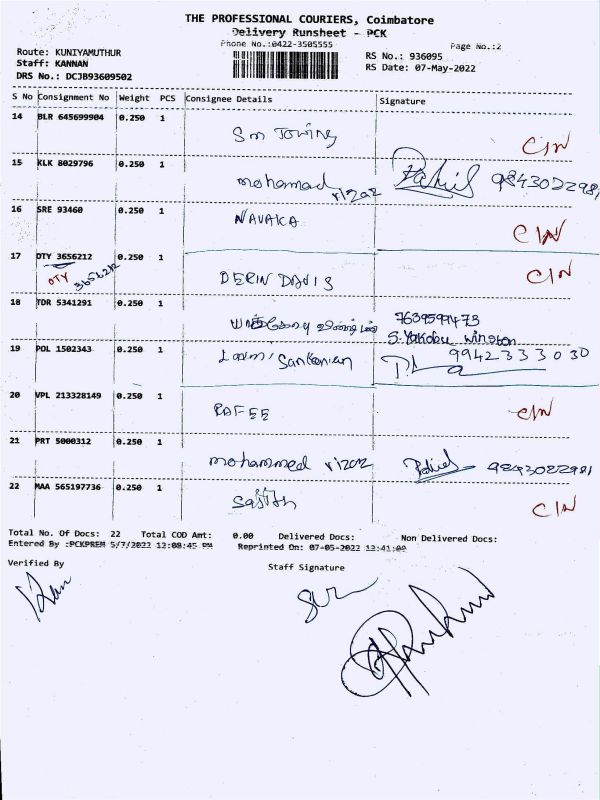 THE PROFESSIONAL COURIERS, Coimbatore
Delivery Runsheet - PCK
Phone No.:0422-3505555
Page No.:2
Route: KUNIYAMUTHUR
Staff: KANNAN
DRS No.: DCJB93609502
RS No.: 936095
RS Date: 07-May-2022
S No Consignment No Weight PCS Consignee Details Signature
14 BLR 645699904 0.250 1
Sm Towing CIN
15 KLK 8029796 0.250 1
mohamad rizaz 9843022981
16 SRE 93460 0.250 1
NAVAKA CIN
17 DTY 3656212 0.250 1
DTY 3656212
DERIN DAVIS CIN
18 TDR 5341291 0.250 1
7639599473
S. Yakobu winston
19 POL 1502343 0.250 1
Laxmi Sankanian 9942333030
20 VPL 213328149 0.250 1
RAFEE CIN
21 PRT 5000312 0.250 1
mohammed rizaz 9843022981
22 MAA 565197736 0.250 1
Sajith CIN
Total No. Of Docs: 22 Total COD Amt: 0.00 Delivered Docs: Non Delivered Docs:
Entered By :PCKPREM 5/7/2022 12:08:45 PM Reprinted On: 07-05-2022 12:41:09
Verified By
Staff Signature